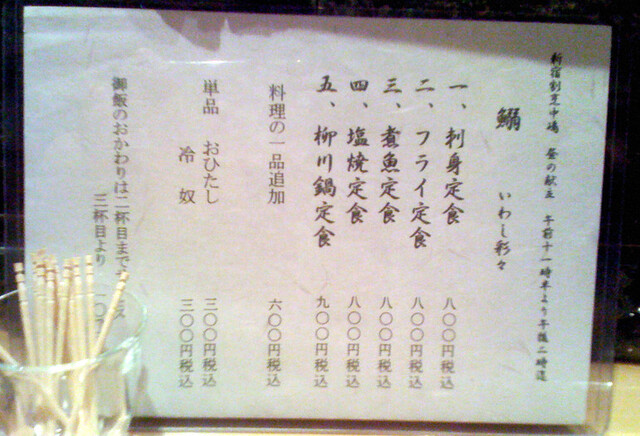 新宿割烹中嶋 昼の献立 午前十一時半より午後二時迄
鰯 いわし彩々
一、刺身定食 八〇〇円税込
二、フライ定食 八〇〇円税込
三、煮魚定食 八〇〇円税込
四、塩焼定食 八〇〇円税込
五、柳川鍋定食 九〇〇円税込
料理の一品追加 六〇〇円税込
単品 おひたし 三〇〇円税込
冷奴 三〇〇円税込
御飯のおかわりは二杯目まで
三杯目より